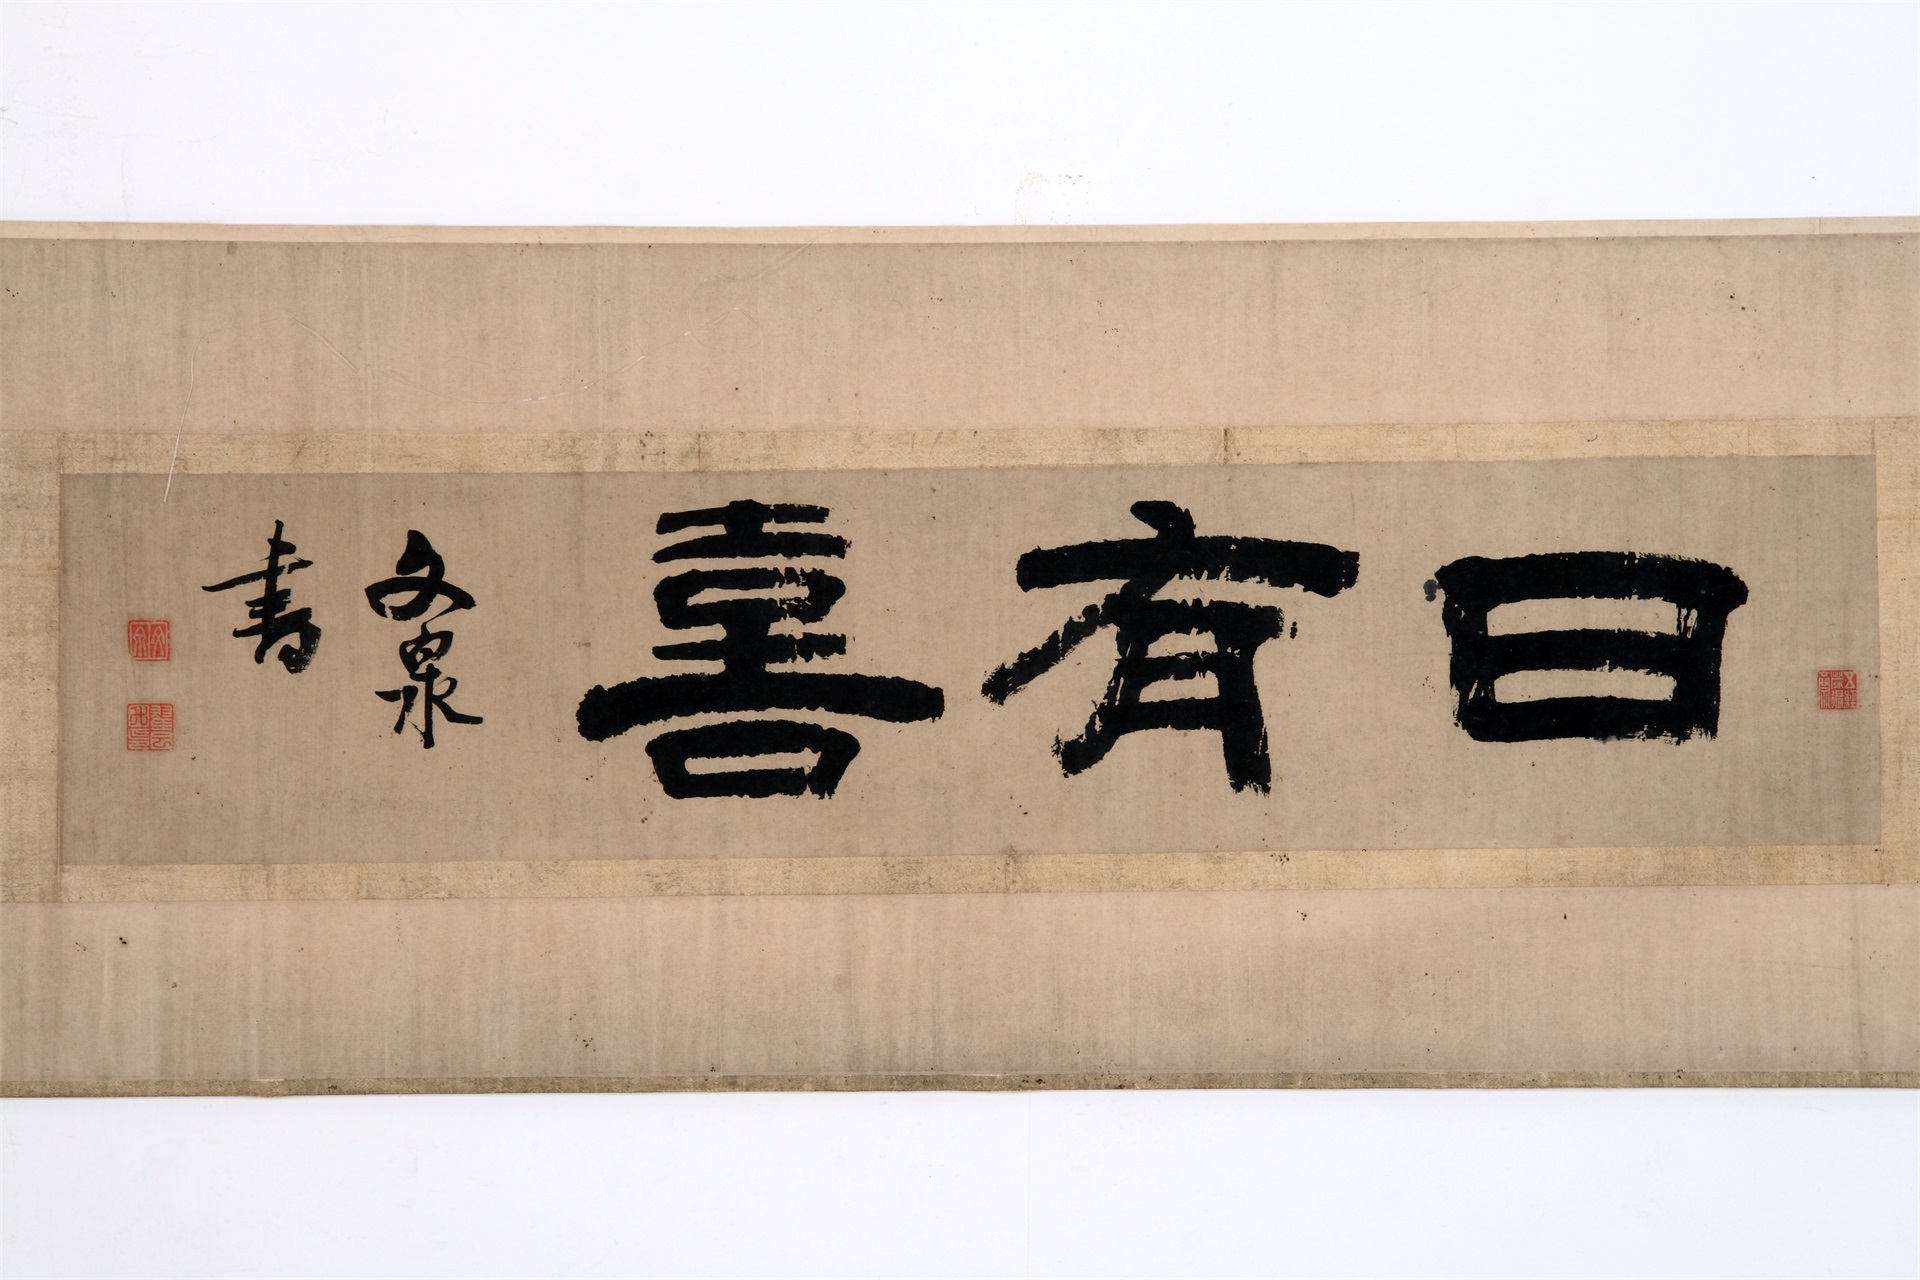 日有喜
文泉
書